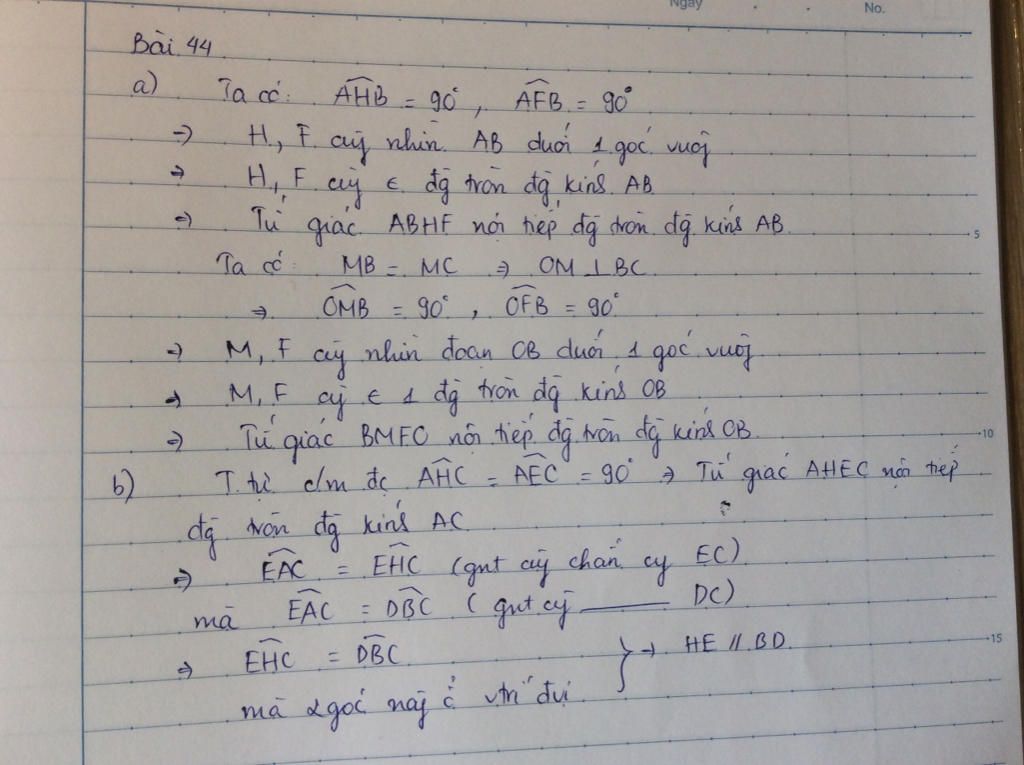 Ngày No.
Bài 44
a) Ta có: AHB = 90°, AFB = 90°
⇒ H, F cùg nhìn AB dưới 1 góc vuôg
⇒ H, F cùg ∈ đg tròn đg kính AB
⇒ Tứ giác ABHF nội tiếp đg tròn đg kính AB.
5
Ta có: MB = MC ⇒ OM ⊥ BC
⇒ OMB = 90°, OFB = 90°
⇒ M, F cùg nhìn đoạn OB dưới 1 góc vuôg
⇒ M, F cùg ∈ 1 đg tròn đg kính OB
⇒ Tứ giác BMFO nội tiếp đg tròn đg kính OB
10
b) T.tự c/m đc AHC = AEC = 90° ⇒ Tứ giác AHEC nội tiếp
đg tròn đg kính AC
⇒ EAC = EHC (gnt cùg chắn cg EC)
mà EAC = DBC (gnt cùg ——— DC)
⇒ EHC = DBC } → HE // BD.
15
mà 2 góc này ở vtrí đvị